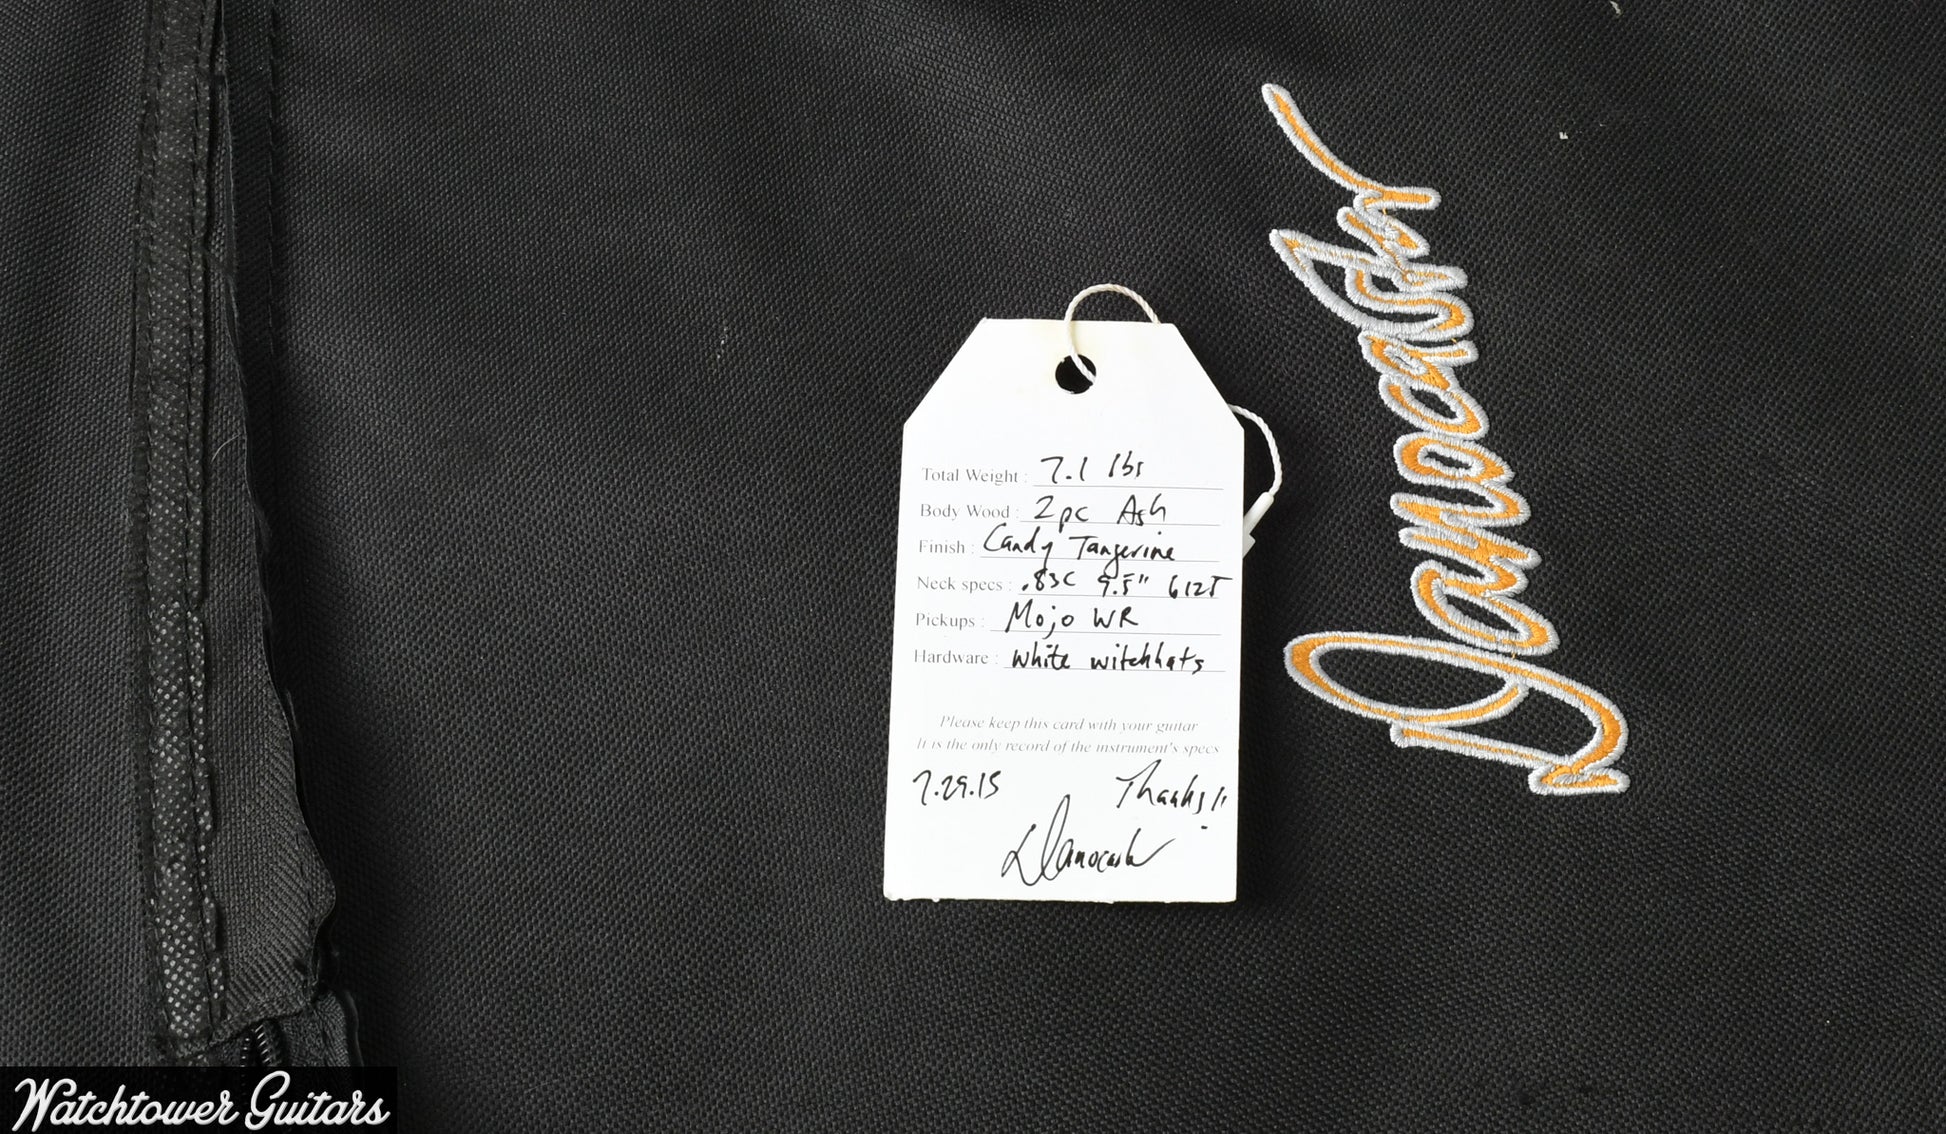 Total Weight : 7.1 lbs
Body Wood : 2pc Ash
Finish : Candy Tangerine
Neck specs : .83C 9.5" 6125
Pickups : Mojo WR
Hardware : White witchhats
Please keep this card with your guitar
It is the only record of the instrument's specs
7.29.15 Thanks!!
Danocaster
Watchtower Guitars